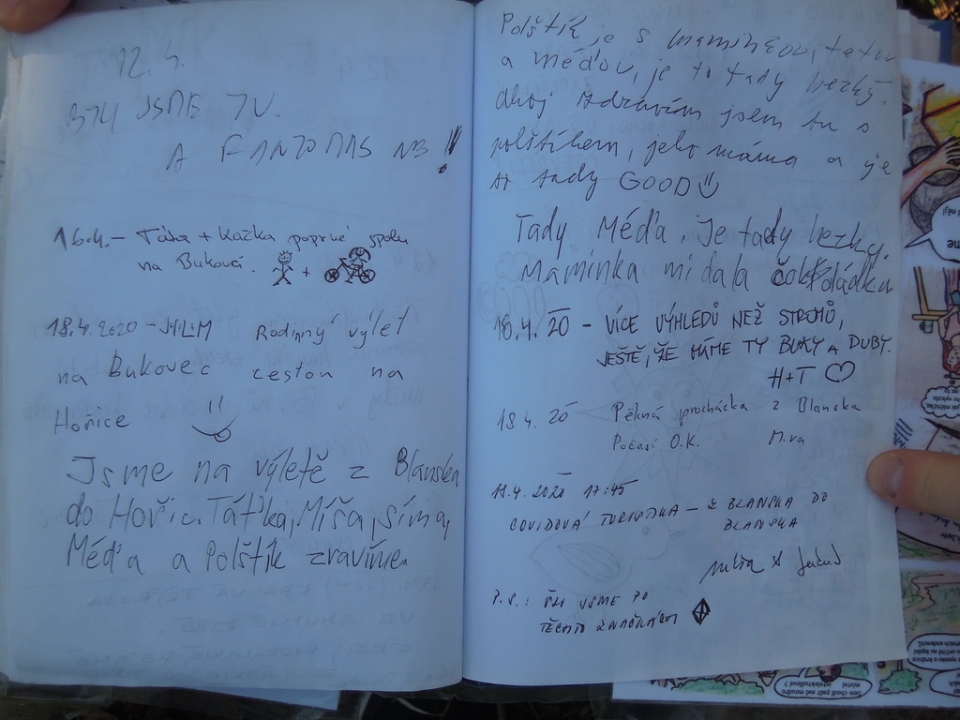 12.4.
BYLI JSME TU.
A FANTOMAS NE!!
16.4. – Táňa + Kačka poprvé spolu
na Bukovci. +
18.4.2020 – Rodinný výlet
na Bukovec cestou na
Hořice
Jsme na výletě z Blanska
do Hořic. Táťka, Míša, Síma,
Méďa a Polštík zravíme.
Polštík je s maminkou, tatou
a méďou, je to tady hezký.
ahoj zdravím jsem tu s
polštíkem, jeho máma a je
to tady GOOD
Tady Méďa. Je tady hezky.
Maminka mi dala čokoládku
18.4. 20 – VÍCE VÝHLEDŮ NEŽ STROMŮ,
JEŠTĚ, ŽE MÁME TY BUKY A DUBY.
H+T
18.4. 20 Pěkná procházka z Blanska
Počasí O.K.
18.4.2020 17:45
COVIDOVÁ TURISTIKA – Z BLANSKA DO
BLANSKA
P.S.: ŠLI JSME PO
TĚCHTO ZNAČKÁCH